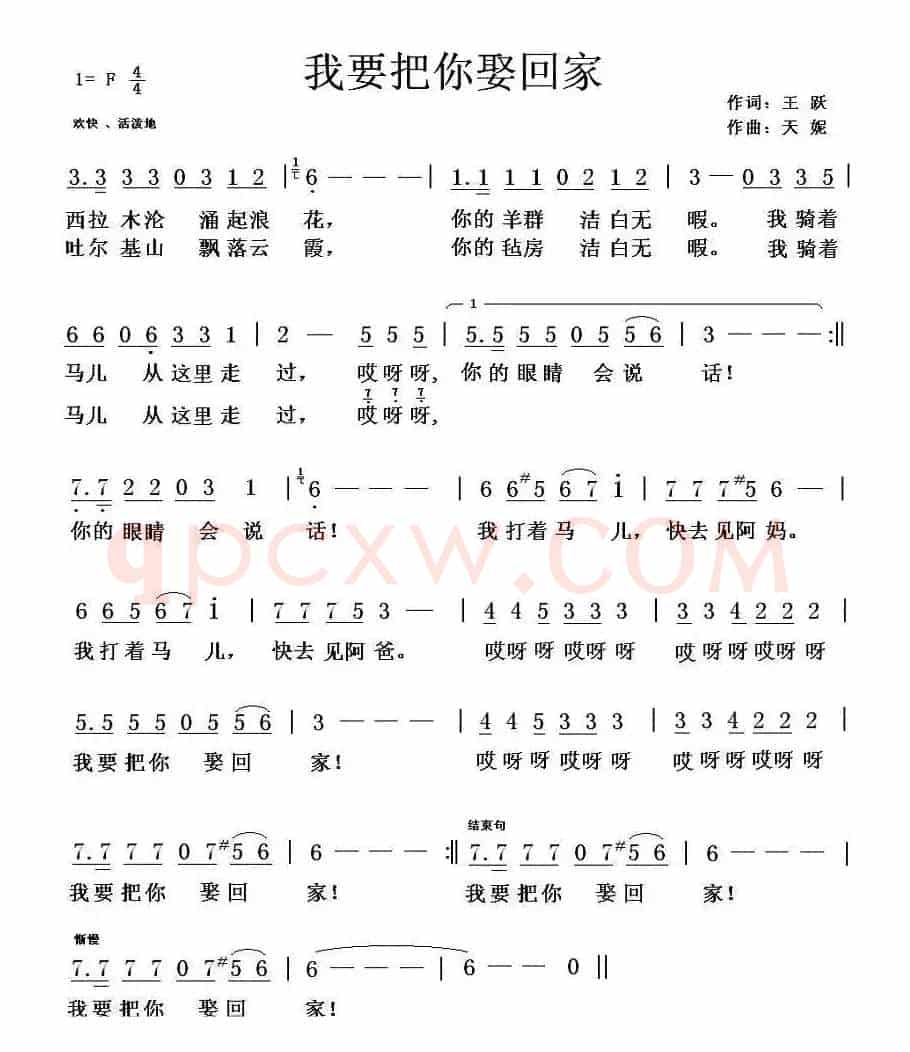 我要把你娶回家
1= F 4/4
作词：王 跃
欢快 、活泼地
作曲：天 妮
3.3 3 3 0 3 1 2 | 6 — — — | 1.1 1 1 0 2 1 2 | 3 — 0 3 3 5 |
西拉 木沦 涌起浪 花， 你的 羊群 洁白无 暇。 我 骑着
吐尔 基山 飘落云 霞， 你的 毡房 洁白无 暇。 我 骑着
1
6 6 0 6 3 3 1 | 2 — 5 5 5 | 5.5 5 5 0 5 5 6 | 3 — — — :||
马儿 从 这里 走 过， 哎 呀 呀， 你的 眼睛 会 说 话！
7 7 7
马儿 从 这里 走 过， 哎 呀 呀，
7.7 2 2 0 3 1 | 6 — — — | 6 6 #5 6 7 i | 7 7 7 #5 6 — |
你的 眼睛 会 说 话！ 我 打着 马 儿， 快去 见阿 妈。
6 6 5 6 7 i | 7 7 7 5 3 — | 4 4 5 3 3 3 | 3 3 4 2 2 2 |
我 打着 马 儿， 快去 见阿 爸。 哎呀 呀 哎呀 呀 哎呀 呀哎呀 呀
5.5 5 5 0 5 5 6 | 3 — — — | 4 4 5 3 3 3 | 3 3 4 2 2 2 |
我要 把你 娶 回 家！ 哎呀 呀 哎呀 呀 哎呀 呀哎呀 呀
结束句
7.7 7 7 0 7 #5 6 | 6 — — — :|| 7.7 7 7 0 7 #5 6 | 6 — — — |
我要 把你 娶 回 家！ 我要 把你 娶 回 家！
渐慢
7.7 7 7 0 7 #5 6 | 6 — — — | 6 — — 0 ||
我要 把你 娶 回 家！
qpcxw.COM